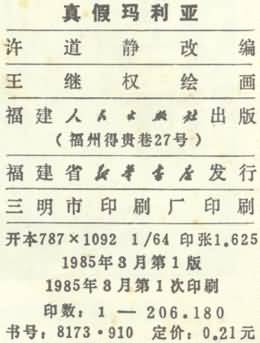 真假玛利亚
许道静改编
王继权绘画
福建人民出版社出版
(福州得贵巷27号)
福建省新华书店发行
三明市印刷厂印刷
开本787×1092 1/64 印张1.625
1985年3月第1版
1985年3月第1次印刷
印数：1—206.180
书号：8173·910 定价：0.21元